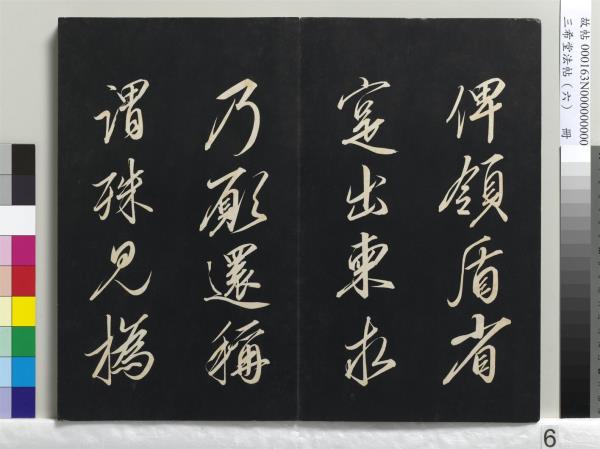 俾領盾省
寔出東求
乃願還稱
謂殊見撝
故帖 000163N000000000
三希堂法帖（六） 冊
6